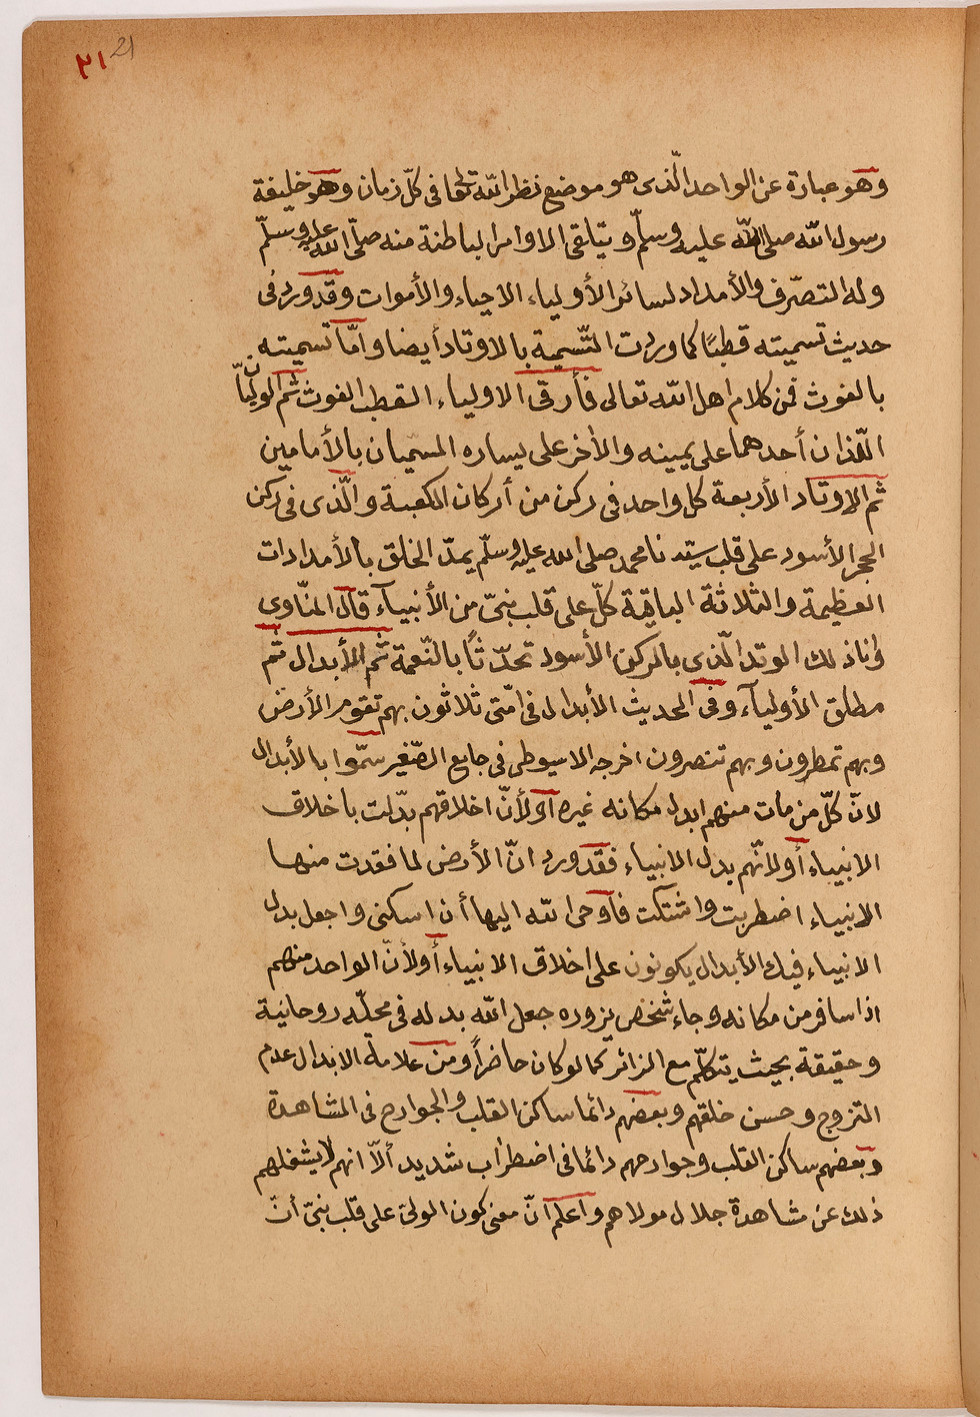 ٢١ 21
وهو عبارة عن الواحد الّذى هو موضع نظر الله تعا فى كلّ زمان وهو خليفة
رسول الله صلى الله عليه وسلّم ويتلقى الاوامر الباطنة منه صلّى الله عليه وسلّم
وله التصرّف والأمداد لسائر الأولياء الاحياء والأموات وقد ورد فى
حديث تسميته قطبًا كما وردت التّسمية بالاوتاد أيضا وامّا تسميته
بالغوث فمن كلام اهل الله تعالى فأرقى الاولياء القطب الغوث ثم الوليّان
اللّذان أحدهما على يمينه والأخر على يساره المسمّيان بالأمامين
ثم الاوتاد الأربعة كل واحد فى ركن من أركان الكعبة والّذى فى ركن
الحجر الأسود على قلب سيّدنا محمد صلى الله عليه وسلّم يمدّ الخلق بالأمدادات
العظيمة والثلاثة الباقية كلّ على قلب نبىّ من الأنبيآء قال المنّاوى
وانا ذلك الوتد الّذى بالركن الأسود تحدّثًا بالنّعمة ثم الأبدال ثم
مطلق الأوليآء وفى الحديث الأبدال فى امّتى ثلاثون بهم تقوم الأرض
وبهم تمطرون وبهم تنصرون اخرجه الاسيوطى فى جامع الصّغير سمّوا بالأبدال
لانّ كلّ من مات منهم ابدل مكانه غيره او لأنّ اخلاقهم بدّلت باخلاق
الانبياء أو لانّهم بدل الانبياء فقد ورد انّ الأرض لما فقدت منها
الانبياء اضطربت واشتكت فاوحى الله اليها أن اسكنى واجعل بدل
الانبياء فيك الأبدال يكونون على اخلاق الانبياء أو لأنّ الواحد منهم
اذا سافر من مكانه وجاء شخص يزوره جعل الله بدله فى محلّه روحانية
وحقيقة بحيث يتكلّم مع الزائر كما لو كان حاضراً ومن علامة الابدال عدم
التزوج وحسن خلقهم وبعضهم دائما ساكن القلب والجوارح فى المشاهدة
وبعضهم ساكن القلب وجوارحهم دائما فى اضطراب شديد ألّا انهم لا يشغلهم
ذلك عن مشاهدة جلال مولاهم واعلم انّ معنى كون الولىّ على قلب نبىّ أنّ